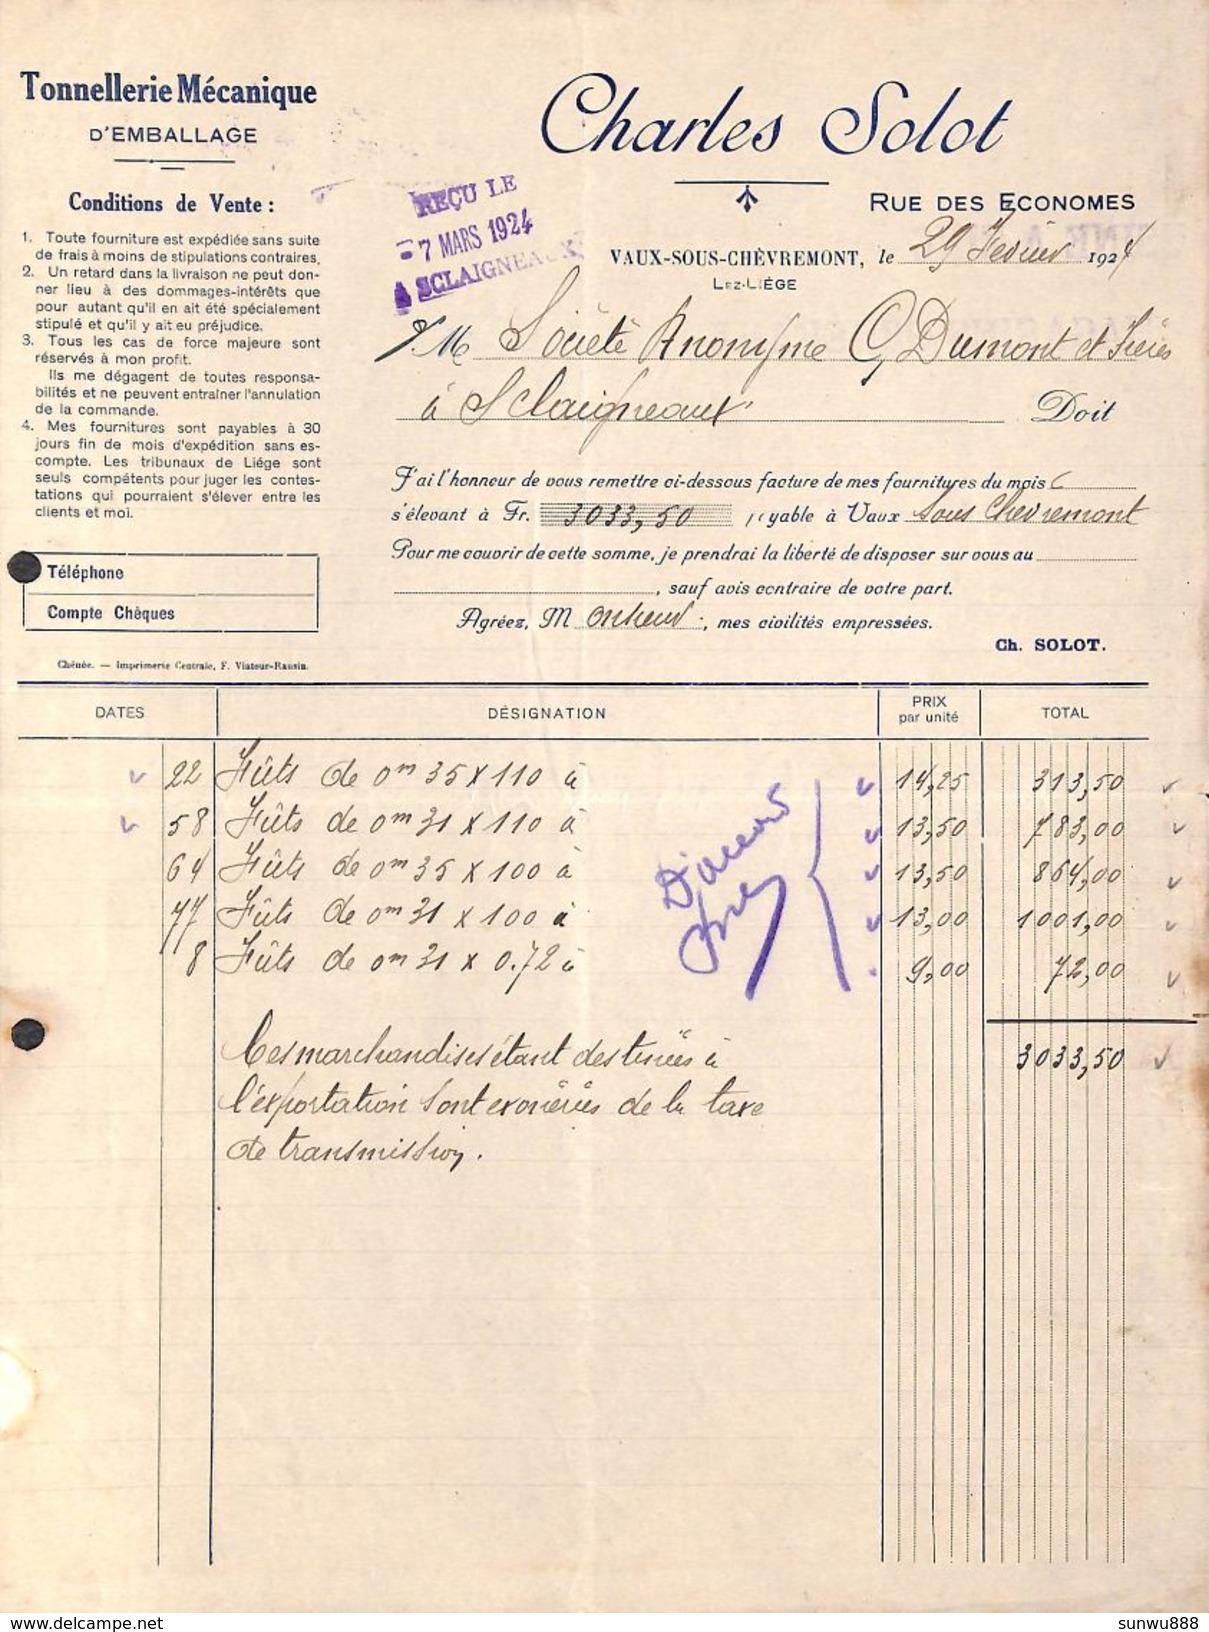 Tonnellerie Mécanique
D'EMBALLAGE
Conditions de Vente :
1. Toute fourniture est expédiée sans suite
de frais à moins de stipulations contraires.
2. Un retard dans la livraison ne peut don-
ner lieu à des dommages-intérêts que
pour autant qu'il en ait été spécialement
stipulé et qu'il y ait eu préjudice.
3. Tous les cas de force majeure sont
réservés à mon profit.
Ils me dégagent de toutes responsa-
bilités et ne peuvent entraîner l'annulation
de la commande.
4. Mes fournitures sont payables à 30
jours fin de mois d'expédition sans es-
compte. Les tribunaux de Liége sont
seuls compétents pour juger les contes-
tations qui pourraient s'élever entre les
clients et moi.
Téléphone
Compte Chèques
Chênée. — Imprimerie Centrale, F. Viatour-Ransin.
Charles Solot
RUE DES ECONOMES
REÇU LE
- 7 MARS 1924
A SCLAIGNEAUX
VAUX-SOUS-CHÈVREMONT, le 29 Février 1924
LEZ-LIÉGE
M Société Anonyme G, Dumont et Frères
à Sclaigneaux Doit
J'ai l'honneur de vous remettre ci-dessous facture de mes fournitures du mois
s'élevant à Fr. 3033,50 payable à Vaux Sous Chevremont
Pour me couvrir de cette somme, je prendrai la liberté de disposer sur vous au
, sauf avis contraire de votre part.
Agréez, M onsieur, mes civilités empressées.
Ch. SOLOT.
DATES DÉSIGNATION PRIX par unité TOTAL
22 Fûts de 0m 35 x 110 à 14,25 313,50
58 Fûts de 0m 31 x 110 à 13,50 783,00
64 Fûts de 0m 35 x 100 à 13,50 864,00
77 Fûts de 0m 31 x 100 à 13,00 1001,00
8 Fûts de 0m 31 x 0.72 à 9,00 72,00
D'accord
3033,50
Ces marchandises étant destinées à
l'exportation sont exonérées de la taxe
de transmission.
sunwu888